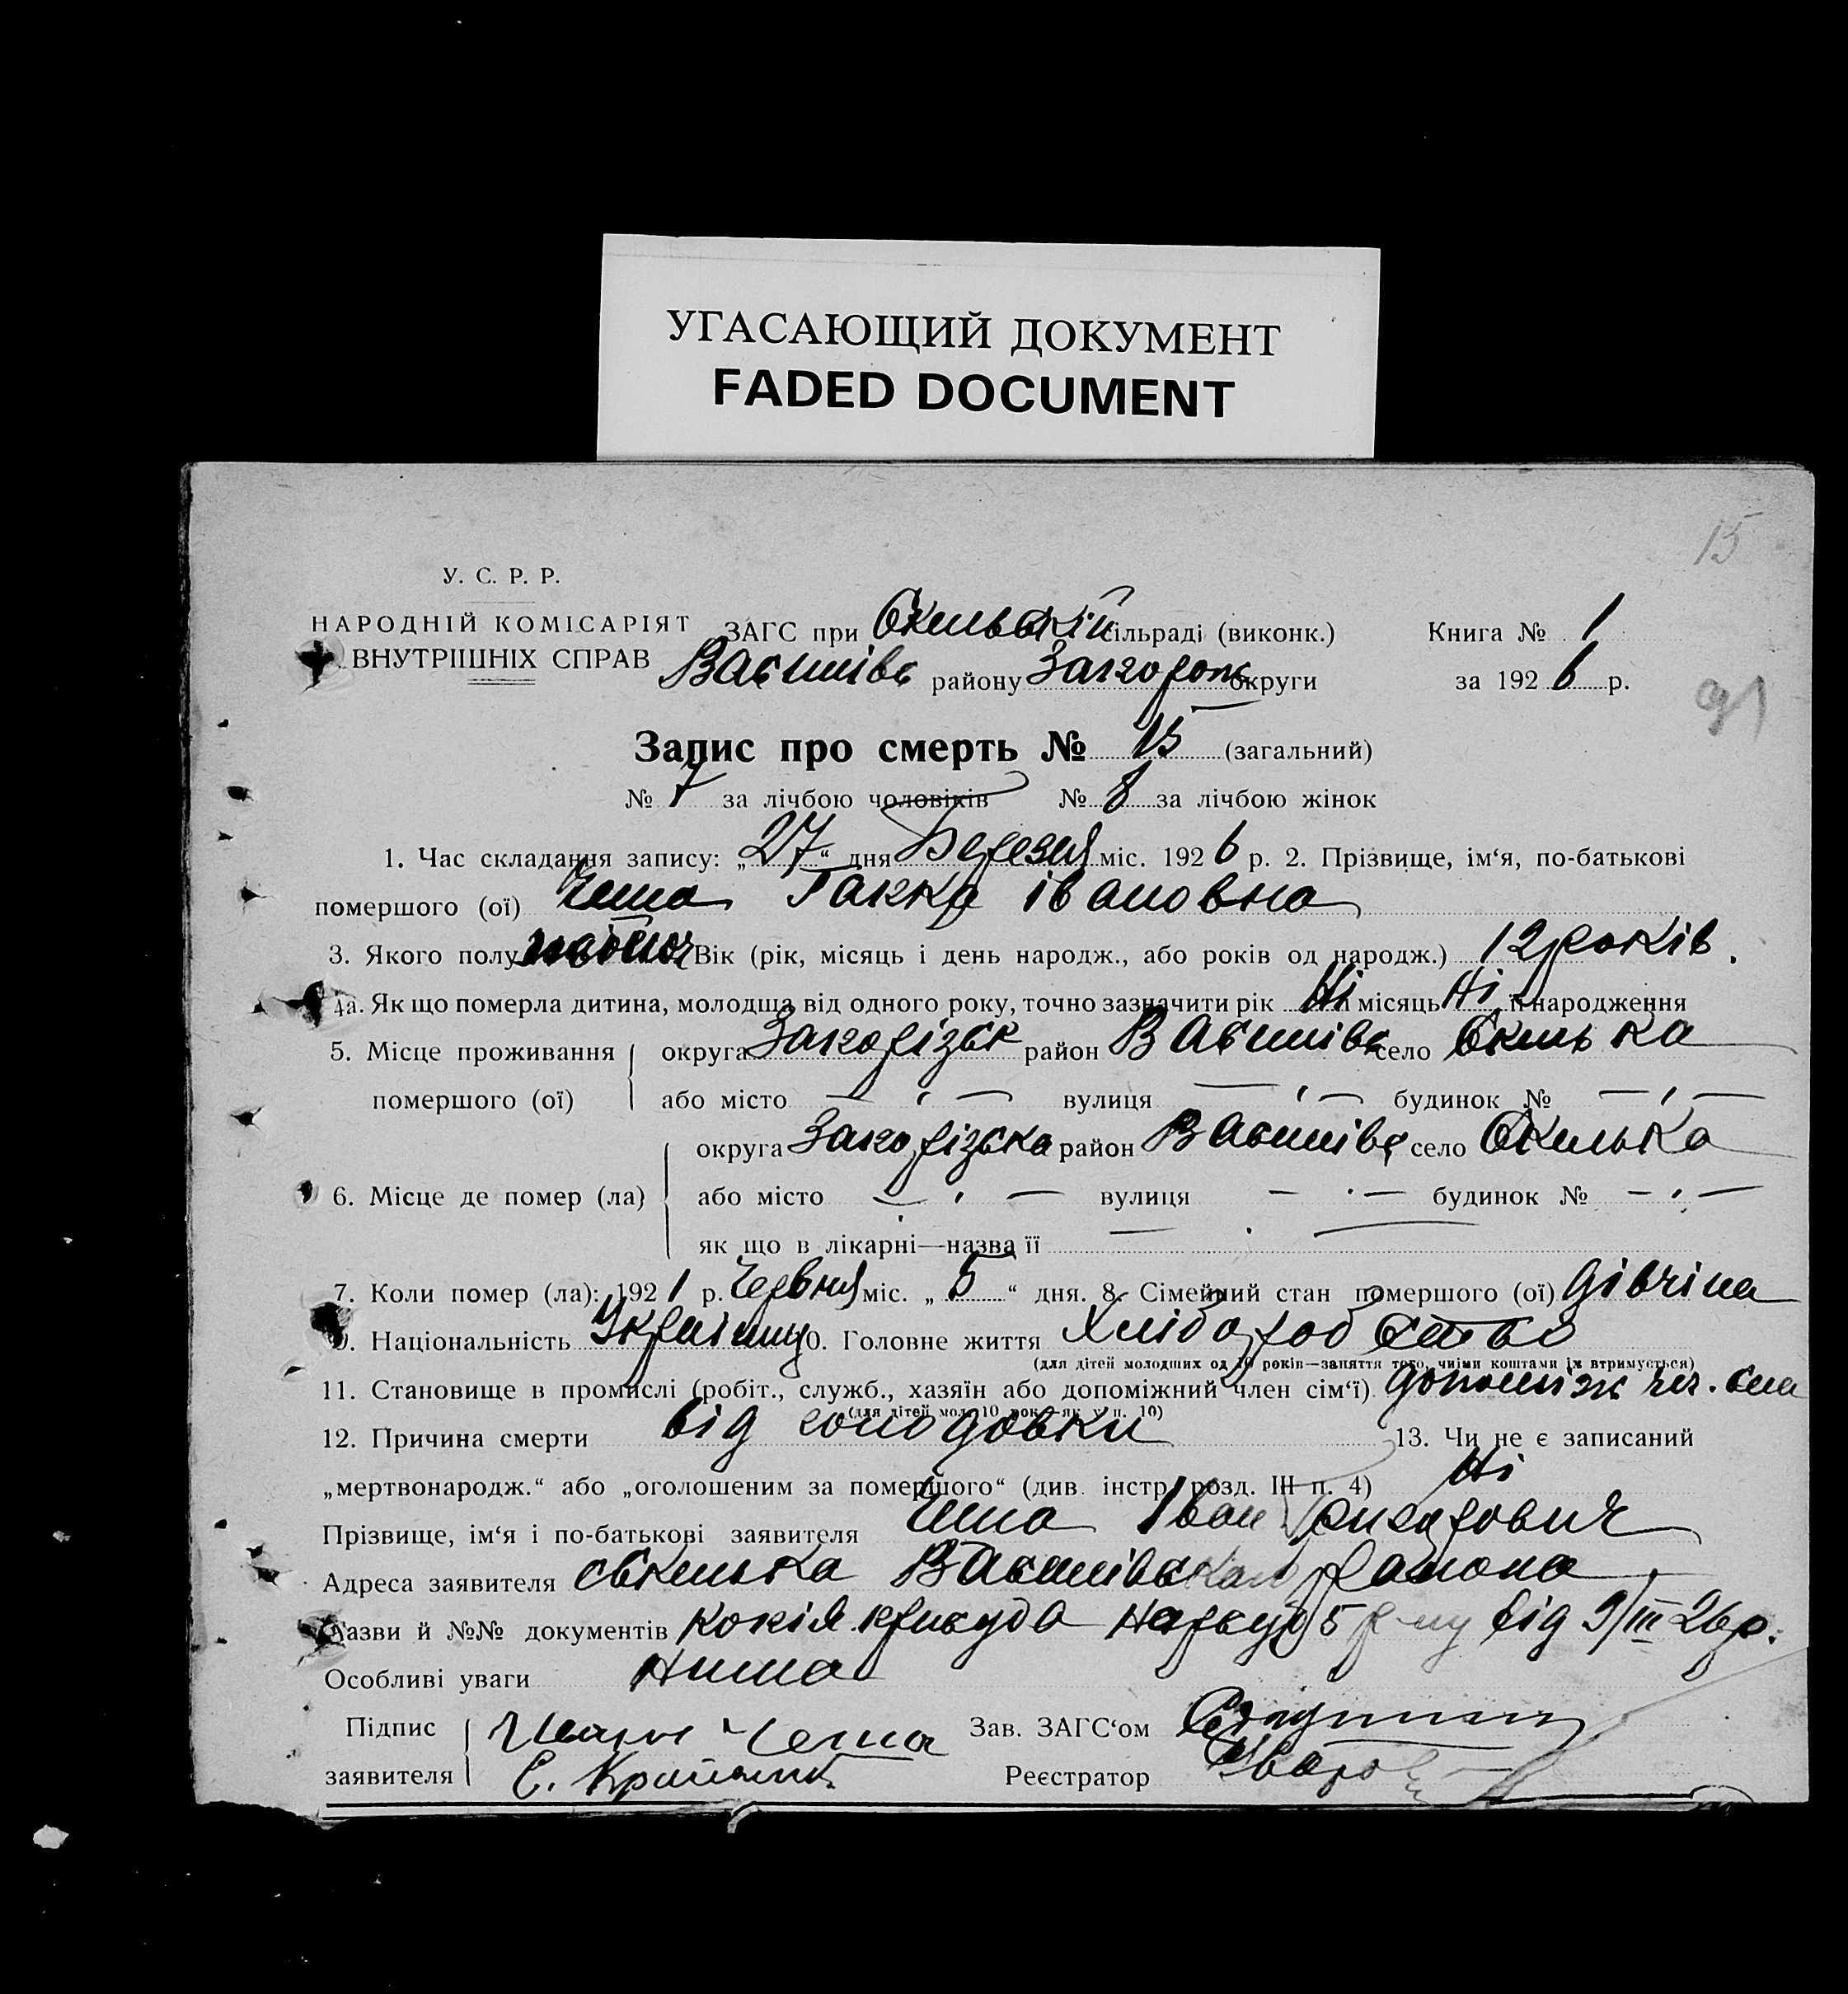 УГАСАЮЩИЙ ДОКУМЕНТ
FADED DOCUMENT
15
У. С. Р. Р.
НАРОДНІЙ КОМІСАРІЯТ
ВНУТРІШНІХ СПРАВ
ЗАГС при Скельській сільраді (виконк.) Книга № 1
Василівс району Запорож округи за 1926 р.
91
Запис про смерть № 15 (загальний)
№ 7 за лічбою чоловіків № 8 за лічбою жінок
1. Час складання запису: „27“ дня Березня міс. 1926 р. 2. Прізвище, ім‘я, по-батькові
помершого (ої) Івановна
3. Якого полу Вік (рік, місяць і день народж., або років од народж.) 12 років.
4а. Як що померла дитина, молодша від одного року, точно зазначити рік Ні місяць Ні її народження
5. Місце проживання округа район Василівс село Скелька
помершого (ої) або місто — „ — вулиця — „ — будинок № — „ —
округа район Василівс село Скелька
6. Місце де помер (ла) або місто — „ — вулиця — „ — будинок № — „ —
як що в лікарні—назва її — „ —
7. Коли помер (ла): 1921 р. Червня міс. „5“ дня. 8. Сімейний стан помершого (ої) дівчіна
9. Національність 10. Головне життя Хліборобство
(для дітей молодших од 10 років—заняття того, чиїми коштами їх втримується)
11. Становище в промислі (робіт., служб., хазяїн або допоміжний член сім‘ї) допоміж чл. сем
(для дітей мол. 10 рок.—як у п. 10)
12. Причина смерти від голодовки 13. Чи не є записаний
„мертвонародж.“ або „оголошеним за померлого“ (див. інстр. розд. III п. 4) Ні
Прізвище, ім‘я і по-батькові заявителя Іван Григорович
Адреса заявителя Скелька Василівського района
Назви й №№ документів Нарсуд 5 р-ну від 9/III 26 р.
Особливі уваги Нима
Підпис Зав. ЗАГС‘ом
заявителя Реєстратор